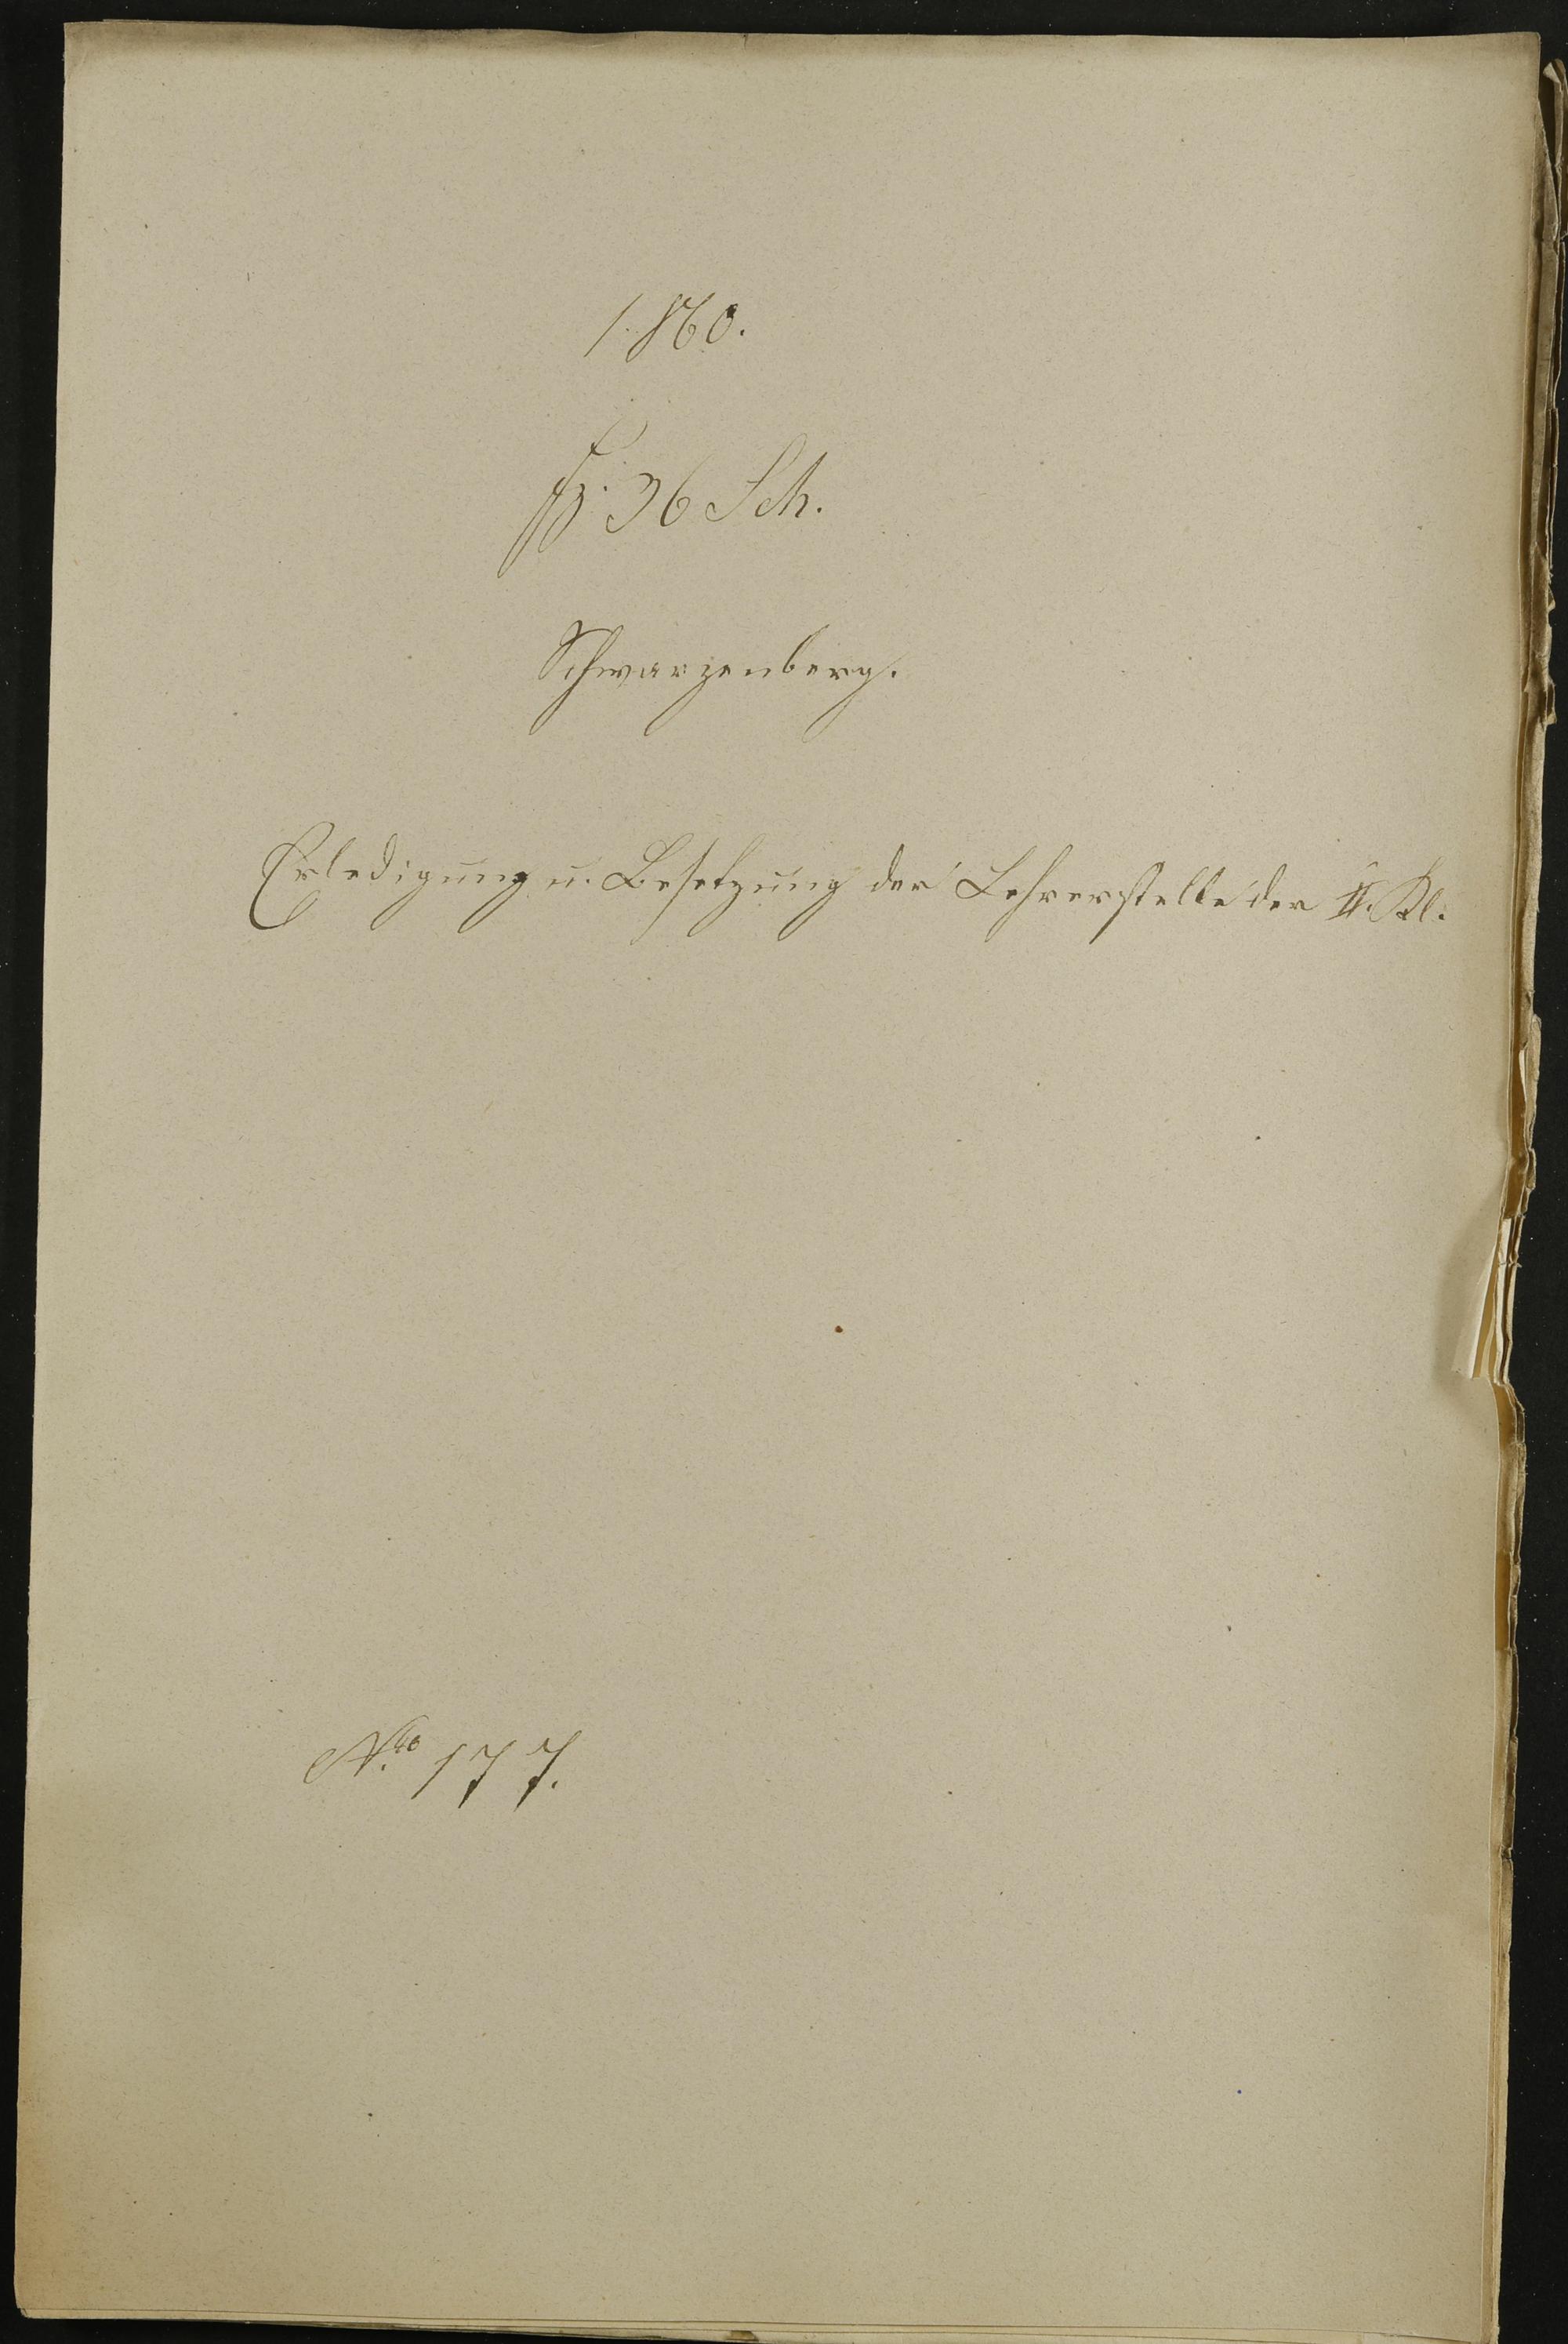 1860.
Fz. 36 Sch.
Schwarzenberg.
Erledigung u. Besetzung der Lehrerstelle der II. Kl.
N.ro 177.